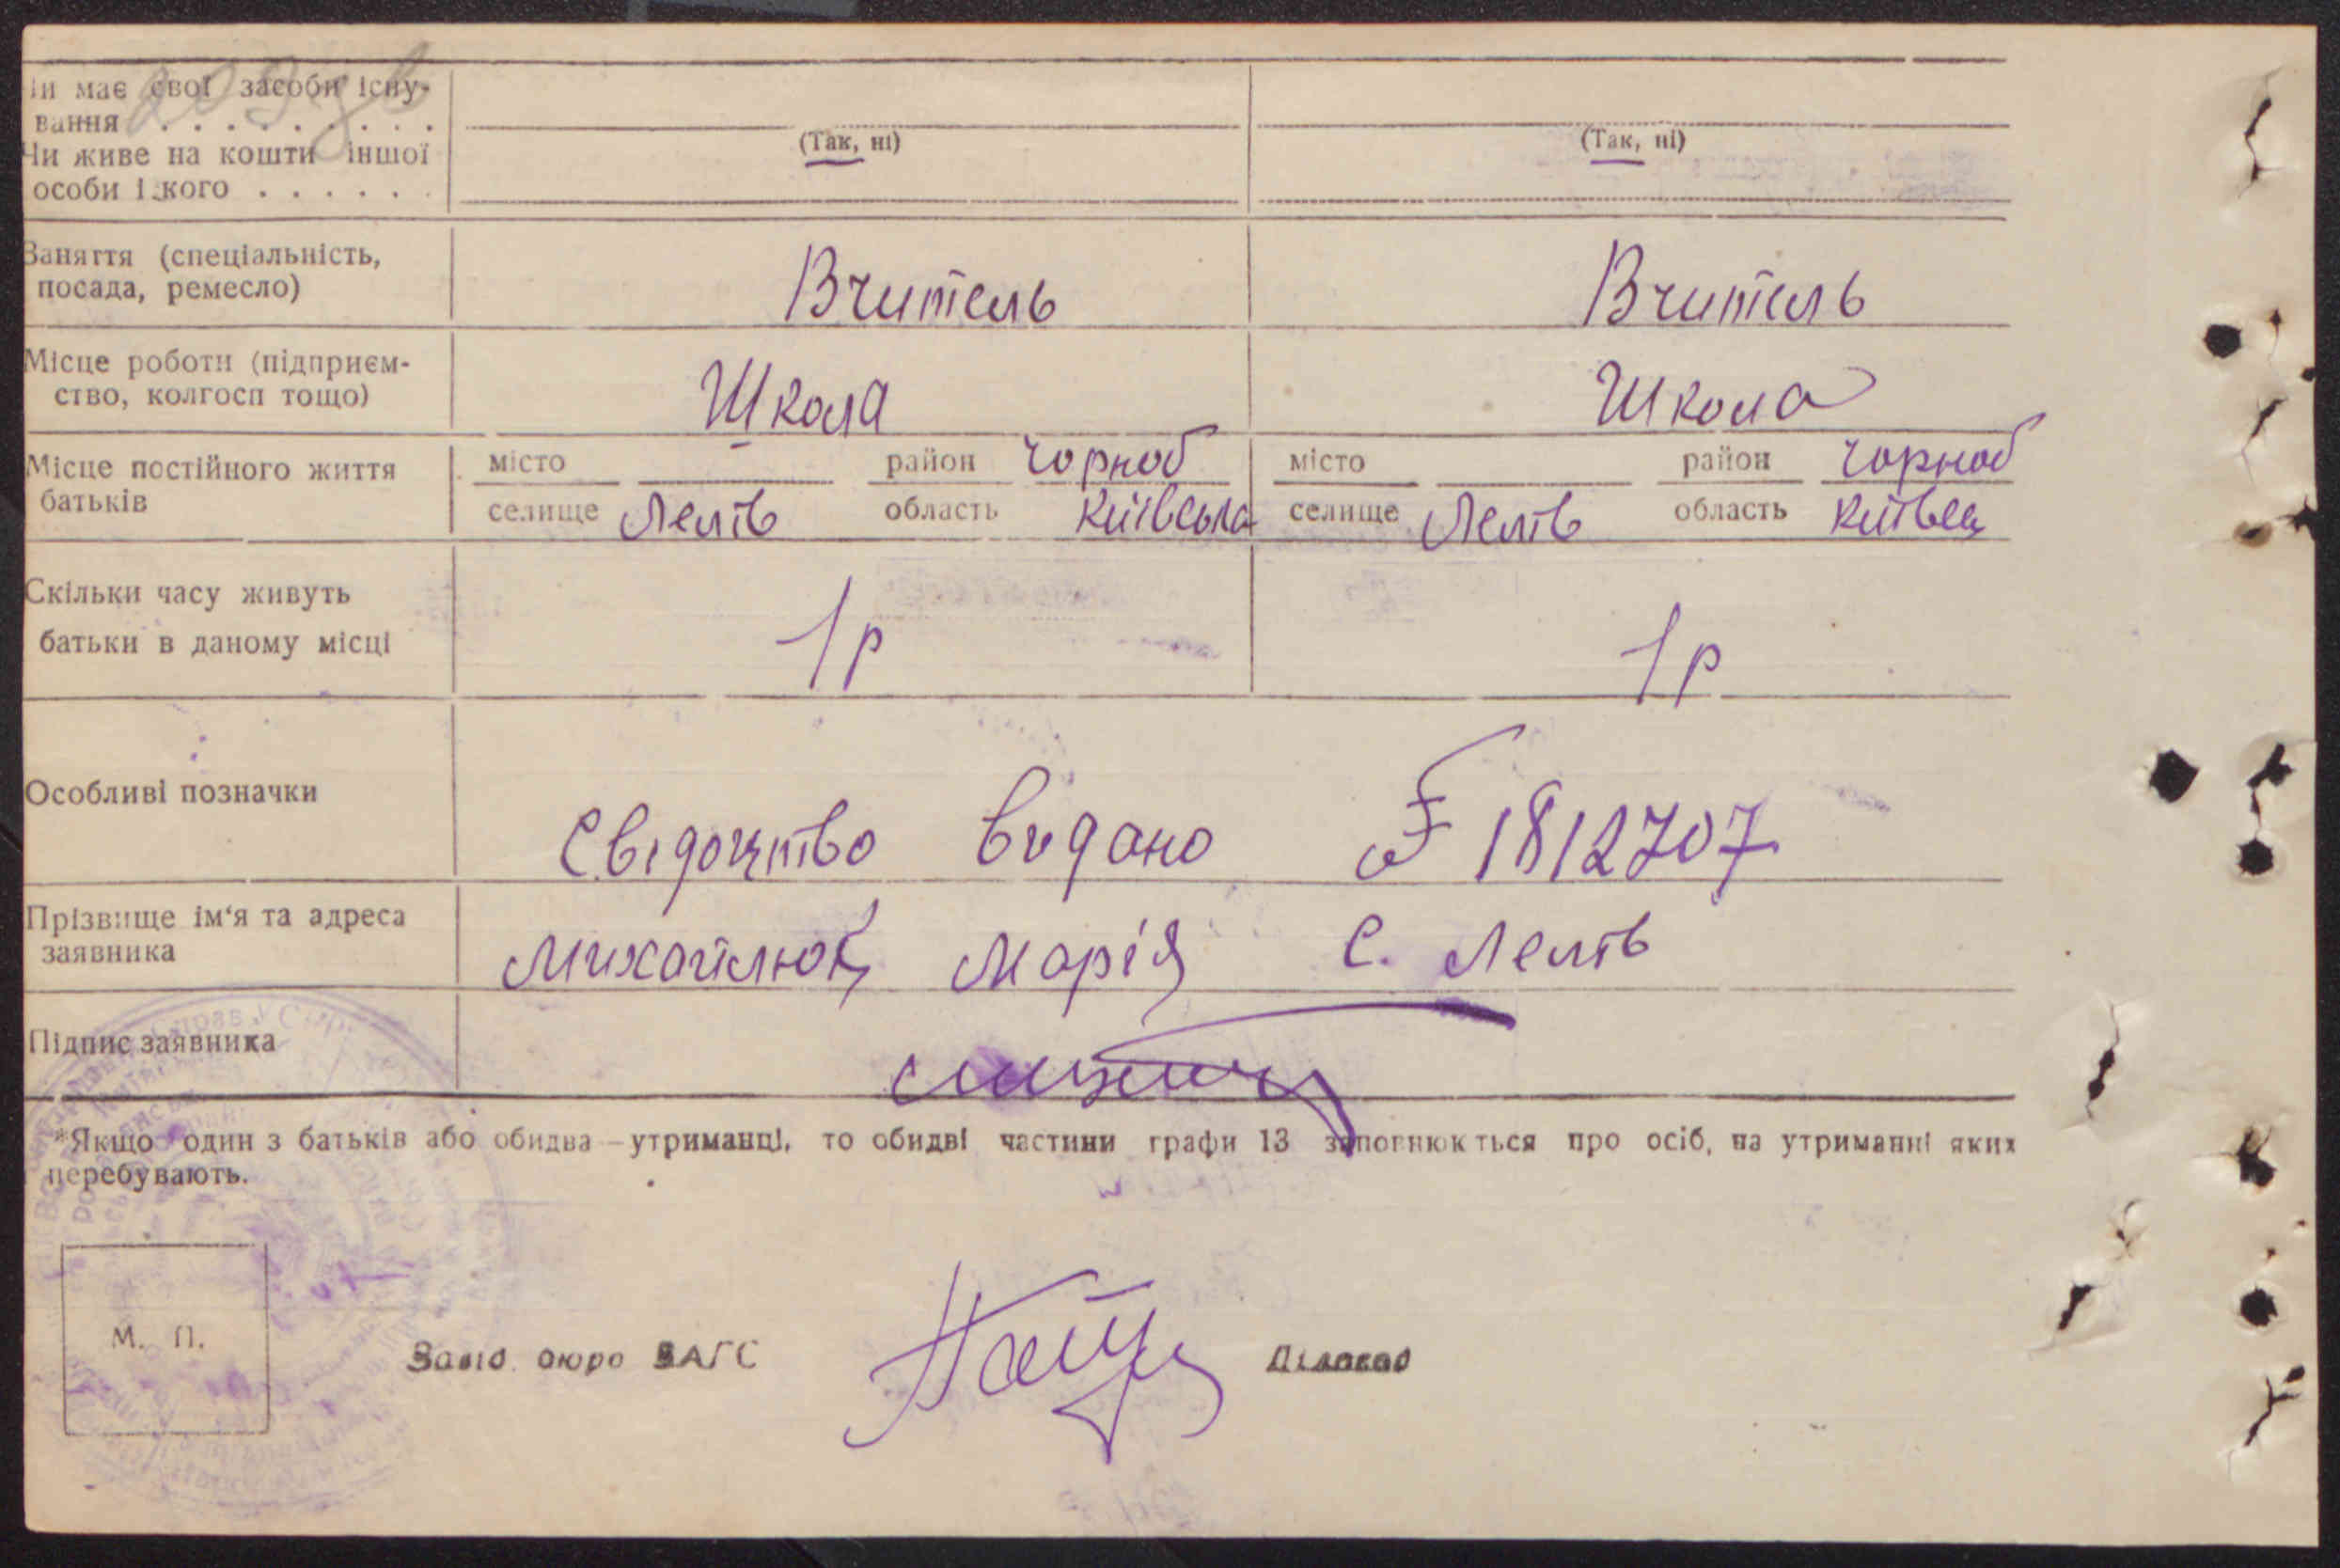 Чи має свої засоби існу-
вання . . . . . . . . .
(Так, ні) (Так, ні)
Чи живе на кошти іншої
особи і кого . . . . . .
Заняття (спеціальність,
посада, ремесло)
Вчитель Вчитель
Місце роботи (підприєм-
ство, колгосп тощо)
Школа Школа
Місце постійного життя
батьків
місто район Чорноб місто район Чорноб
селище Лелів область Київська селище Лелів область Київсц
Скільки часу живуть
батьки в даному місці
1р 1р
Особливі позначки
Свідоцтво видано 1812707
Прізвище ім'я та адреса
заявника
Михайлюк Марія С. Лелів
Підпис заявника
*Якщо один з батьків або обидва — утриманці, то обидві частини графи 13 заповнюються про осіб, на утриманні яких
перебувають.
М. П.
Завід. бюро ЗАГС Діловод